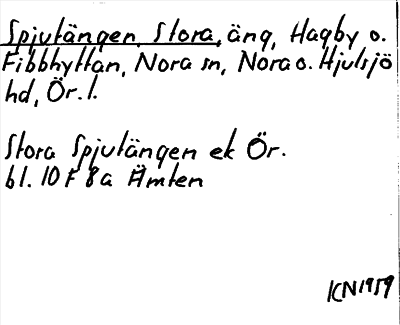 Spjutängen, Stora, äng, Hagby o.
Fibbhyttan, Nora sn, Nora o. Hjulsjö
hd, Ör. l.
Stora Spjutängen ek Ör.
bl. 10 F 8a Ämten
KN1959